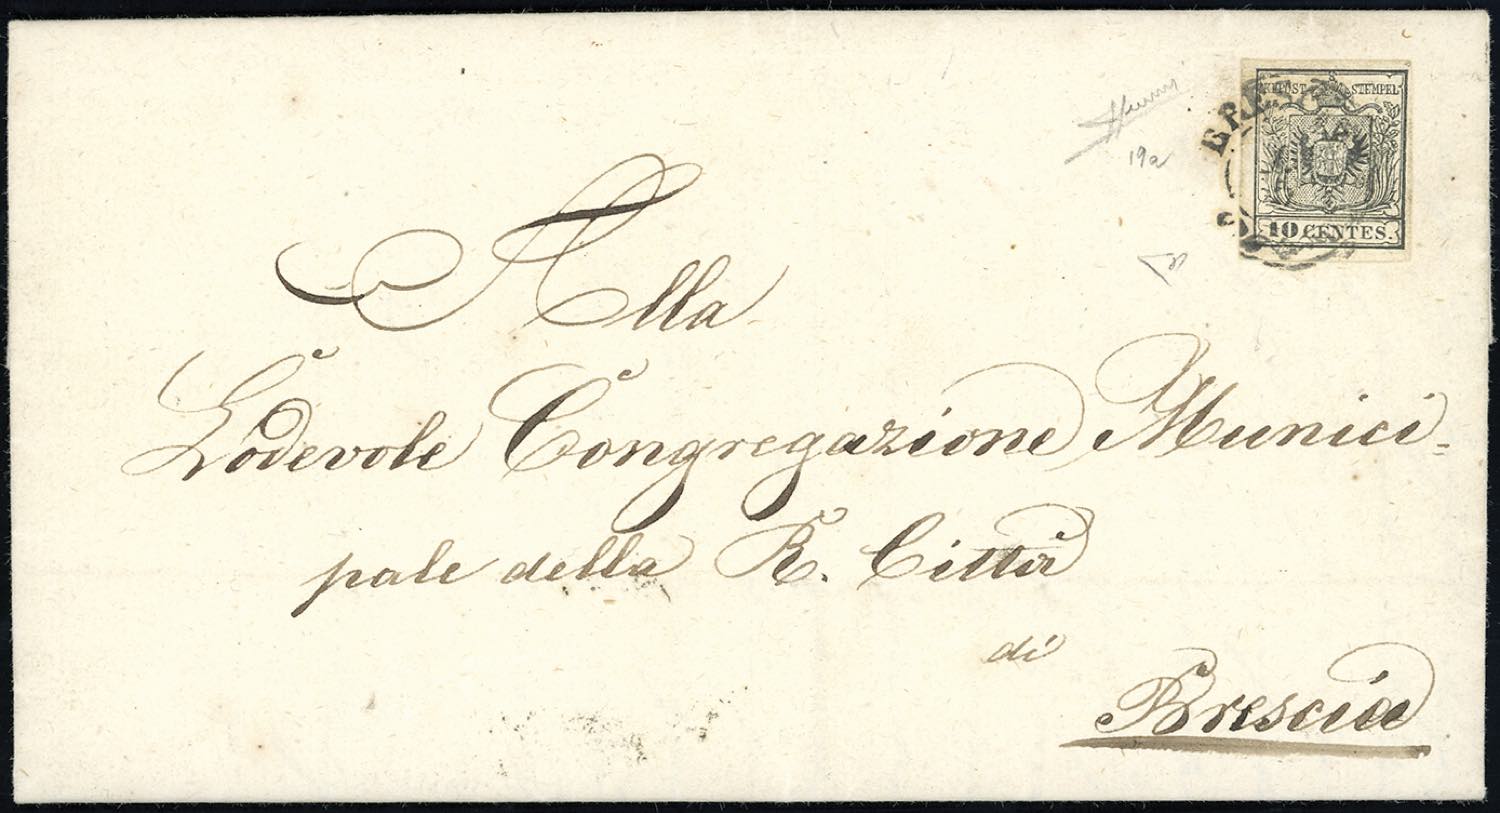 KKPOST STEMPEL
19a
10 CENTES.
Alla
Lodevole Congregazione Munici-
pale della R. Città
di
Brescia